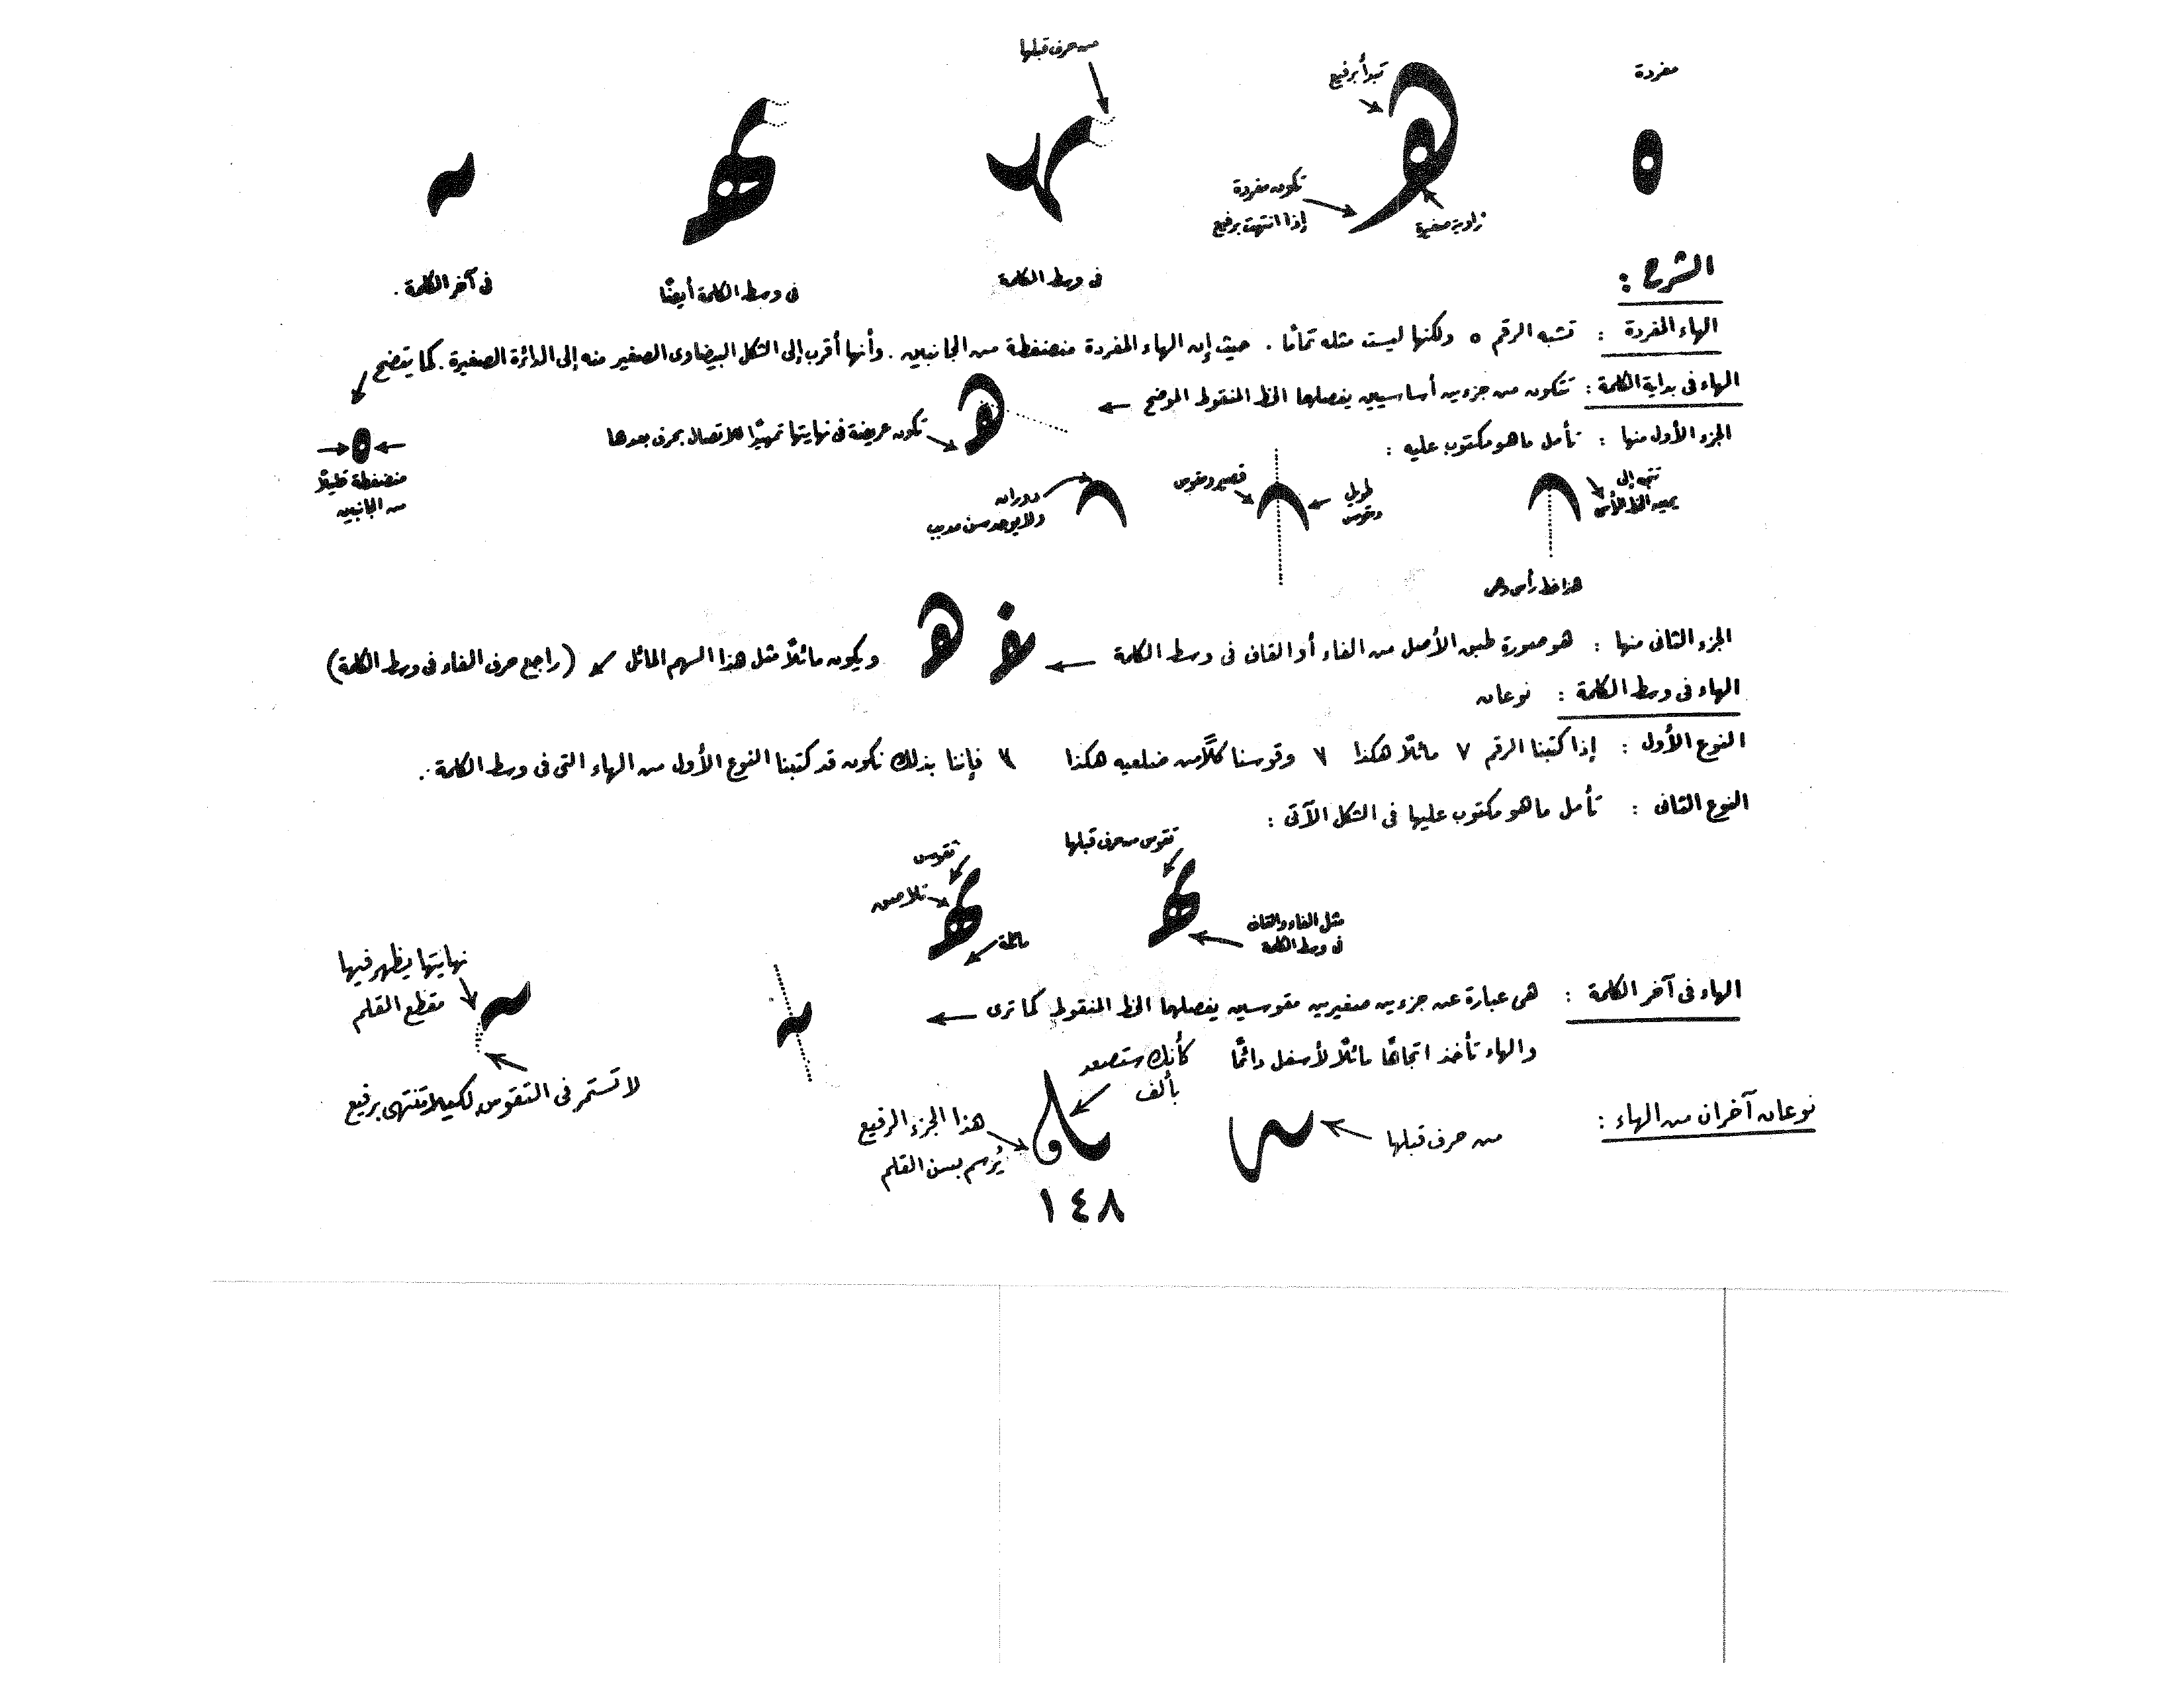 مفردة
تبدأ برفيع
من حرف قبلها
تكون مفردة
إذا انتهت برفيع
زاوية صغيرة
فى وسط الكلمة
فى وسط الكلمة أيضًا
فى آخر الكلمة .
الشرح :
الهاء المفردة : تشبه الرقم ٥ ولكنها ليست مثله تمامًا . حيث إن الهاء المفردة منضغطة من الجانبين . وأنها أقرب إلى الشكل البيضاوى الصغير منه إلى الدائرة الصغيرة . كما يتضح
الهاء فى بداية الكلمة : تتكون من جزءين أساسيين يفصلهما الخط المنقوط الموضح
تكون عريضة فى نهايتها تمهيدًا للاتصال بحرف بعدها
منضغطة قليلًا
من الجانبين
الجزء الأول منها : تأمل ما هو مكتوب عليه :
تتجه إلى
يمين الخط الرأسى
هذا خط رأسى وهمى
طويل
ومقوس
قصير ومقوس
دوران
ولا يوجد سن مدبب
الجزء الثانى منها : هو صورة طبق الأصل من الفاء أو القاف فى وسط الكلمة
ف ه ويكون مائلًا مثل هذا السهم المائل (راجع حرف الفاء فى وسط الكلمة)
الهاء فى وسط الكلمة : نوعان
النوع الأول : إذا كتبنا الرقم ٧ مائلًا هكذا ٧ وقوسنا كلًّا من ضلعيه هكذا ٧ فإننا بذلك نكون قد كتبنا النوع الأول من الهاء التى فى وسط الكلمة .
النوع الثانى : تأمل ما هو مكتوب عليها فى الشكل الآتى :
تقوس من حرف قبلها
مثل الفاء والقاف
فى وسط الكلمة
تقوس
تلاصق
مائلة
الهاء فى آخر الكلمة : هى عبارة عن جزءين صغيرين مقوسين يفصلهما الخط المنقوط كما ترى
والهاء تأخذ اتجاهًا مائلًا لأسفل دائمًا
نهايتها يظهر فيها
مقطع القلم
لا تستمر فى التقوس لكيلا تنتهى برفيع
نوعان آخران من الهاء :
من حرف قبلها
كأنك ستصعد
بألف
هذا الجزء الرفيع
يُرسم بسن القلم
١٤٨